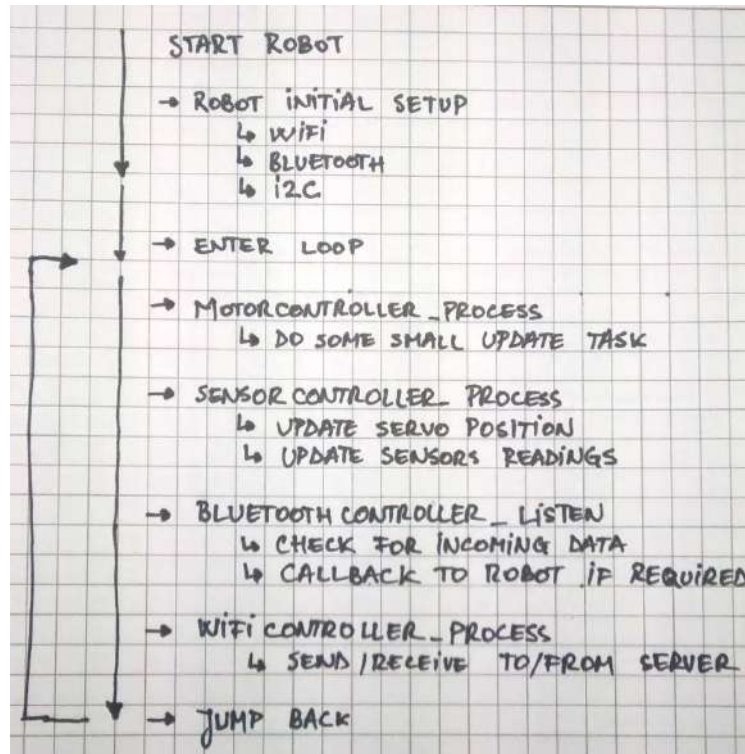 START ROBOT
→ ROBOT iNiTiAL SETUP
↳ WiFi
↳ BLUETOOTH
↳ i2C
→ ENTER LOOP
→ MOTORCONTROLLER_PROCESS
↳ DO SOME SMALL UPDATE TASK
→ SENSORCONTROLLER_PROCESS
↳ UPDATE SERVO POSiTiON
↳ UPDATE SENSORS READiNGS
→ BLUETOOTHCONTROLLER_LiSTEN
↳ CHECK FOR iNCOMiNG DATA
↳ CALLBACK TO ROBOT iF REQUiRED
→ WiFiCONTROLLER_PROCESS
↳ SEND/RECEiVE TO/FROM SERVER
→ JUMP BACK